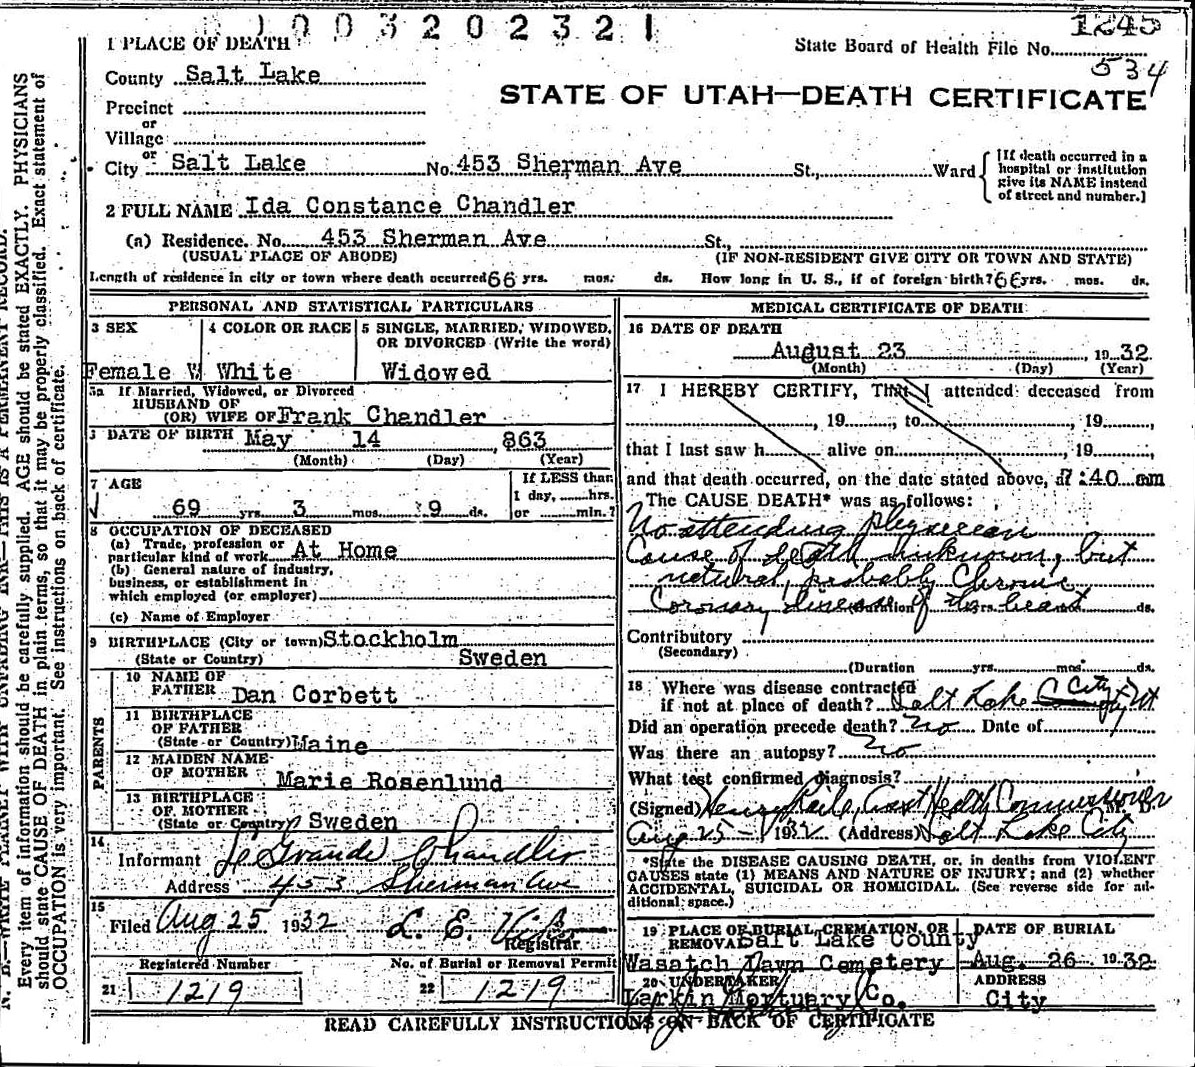 1003202321
1245
1 PLACE OF DEATH
State Board of Health File No.
534
County Salt Lake
STATE OF UTAH—DEATH CERTIFICATE
Precinct
or
Village
or
City Salt Lake No. 453 Sherman Ave St., Ward
[If death occurred in a
hospital or institution
give its NAME instead
of street and number.]
2 FULL NAME Ida Constance Chandler
(a) Residence. No. 453 Sherman Ave St.,
(USUAL PLACE OF ABODE) (IF NON-RESIDENT GIVE CITY OR TOWN AND STATE)
Length of residence in city or town where death occurred 66 yrs. mos. ds. How long in U. S., if of foreign birth? 66 yrs. mos. ds.
PERSONAL AND STATISTICAL PARTICULARS
3 SEX
Female W
4 COLOR OR RACE
White
5 SINGLE, MARRIED, WIDOWED,
OR DIVORCED (Write the word)
Widowed
5a If Married, Widowed, or Divorced
HUSBAND OF
(OR) WIFE OF Frank Chandler
DATE OF BIRTH May 14 , 863
(Month) (Day) (Year)
7 AGE
69 yrs. 3 mos. 9 ds.
If LESS than
1 day, hrs.
or min.?
8 OCCUPATION OF DECEASED
(a) Trade, profession or
particular kind of work At Home
(b) General nature of industry,
business, or establishment in
which employed (or employer)
(c) Name of Employer
9 BIRTHPLACE (City or town) Stockholm
(State or Country) Sweden
PARENTS
10 NAME OF
FATHER Dan Corbett
11 BIRTHPLACE
OF FATHER
(State or Country) Maine
12 MAIDEN NAME
OF MOTHER Marie Rosenlund
13 BIRTHPLACE
OF MOTHER
(State or Country) Sweden
14
Informant Le Grande Chandler
Address 453 Sherman Ave
15
Filed Aug 25 1932 L. E.
Registrar
Registered Number
21 1219
No. of Burial or Removal Permit
22 1219
MEDICAL CERTIFICATE OF DEATH
16 DATE OF DEATH
August 23 , 1932
(Month) (Day) (Year)
17 I HEREBY CERTIFY, That I attended deceased from
, 19 , to , 19 ,
that I last saw h alive on , 19 ,
and that death occurred, on the date stated above, at 7:40 am
The CAUSE DEATH* was as follows:
No attending physician
Cause of death unknown, but
natural, probably Chronic
Coronary disease of the heart
(Duration yrs. ds.
Contributory
(Secondary)
(Duration yrs. mos. ds.
18 Where was disease contracted
if not at place of death? Salt Lake City Ut
Did an operation precede death? no Date of
Was there an autopsy? no
What test confirmed diagnosis?
(Signed) Henry Raile, Asst Health Commissioner M. D.
Aug 25 - 1932 (Address) Salt Lake City
*State the DISEASE CAUSING DEATH, or, in deaths from VIOLENT
CAUSES state (1) MEANS AND NATURE OF INJURY; and (2) whether
ACCIDENTAL, SUICIDAL OR HOMICIDAL. (See reverse side for ad-
ditional space.)
19 PLACE OF BURIAL, CREMATION, OR
REMOVAL Salt Lake County
Wasatch Lawn Cemetery
DATE OF BURIAL
Aug. 26 1932
20 UNDERTAKER
Larkin Mortuary Co.
ADDRESS
City
READ CAREFULLY INSTRUCTIONS ON BACK OF CERTIFICATE
N. B.—WRITE PLAINLY WITH UNFADING INK—THIS IS A PERMANENT RECORD.
Every item of information should be carefully supplied. AGE should be stated EXACTLY. PHYSICIANS
should state CAUSE OF DEATH in plain terms, so that it may be properly classified. Exact statement of
OCCUPATION is very important. See instructions on back of certificate.